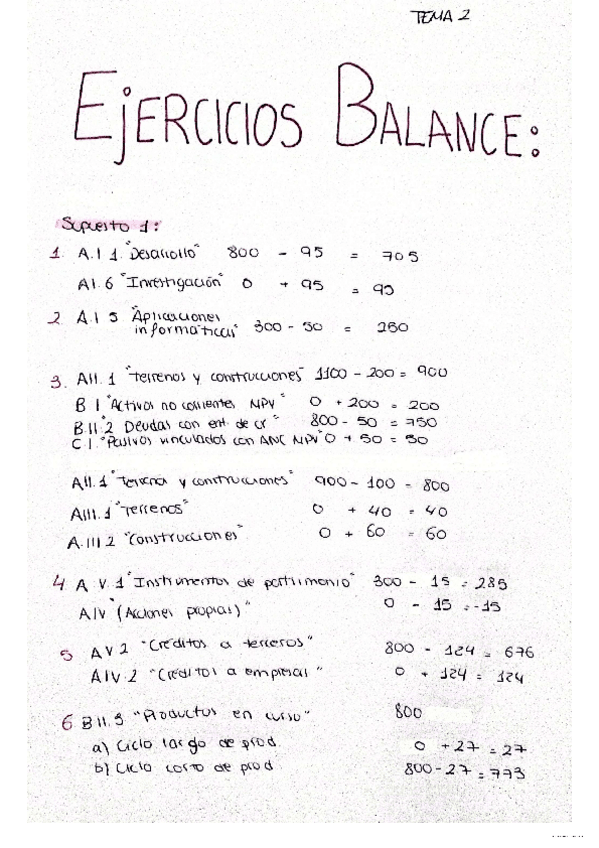 TEMA 2
EJERCICIOS BALANCE:
Supuesto 1:
1. A.I 1. "Desarrollo" 800 - 95 = 705
AI.6 "Investigación" 0 + 95 = 95
2. A.I 5 "Aplicaciones
informáticas" 300 - 50 = 250
3. AII.1 "terrenos y construcciones" 1100 - 200 = 900
B I "Activos no corrientes NPV" 0 + 200 = 200
B II.2 Deudas con ent. de cr" 800 - 50 = 750
C.I. "Pasivos vinculados con ANC NPV" 0 + 50 = 50
AII.1 "terrenos y construcciones" 900 - 100 = 800
AIII.1 "terrenos" 0 + 40 = 40
A.III.2 "Construcciones" 0 + 60 = 60
4. A.V.1 "Instrumentos de patrimonio" 300 - 15 = 285
AIV "(Acciones propias)" 0 - 15 = -15
5 AV2 "Créditos a terceros" 800 - 124 = 676
AIV.2 "Créditos a empresas" 0 + 124 = 124
6. B II.3 "Productos en curso" 800
a) Ciclo largo de prod. 0 + 27 = 27
b) Ciclo corto de prod 800 - 27 = 773